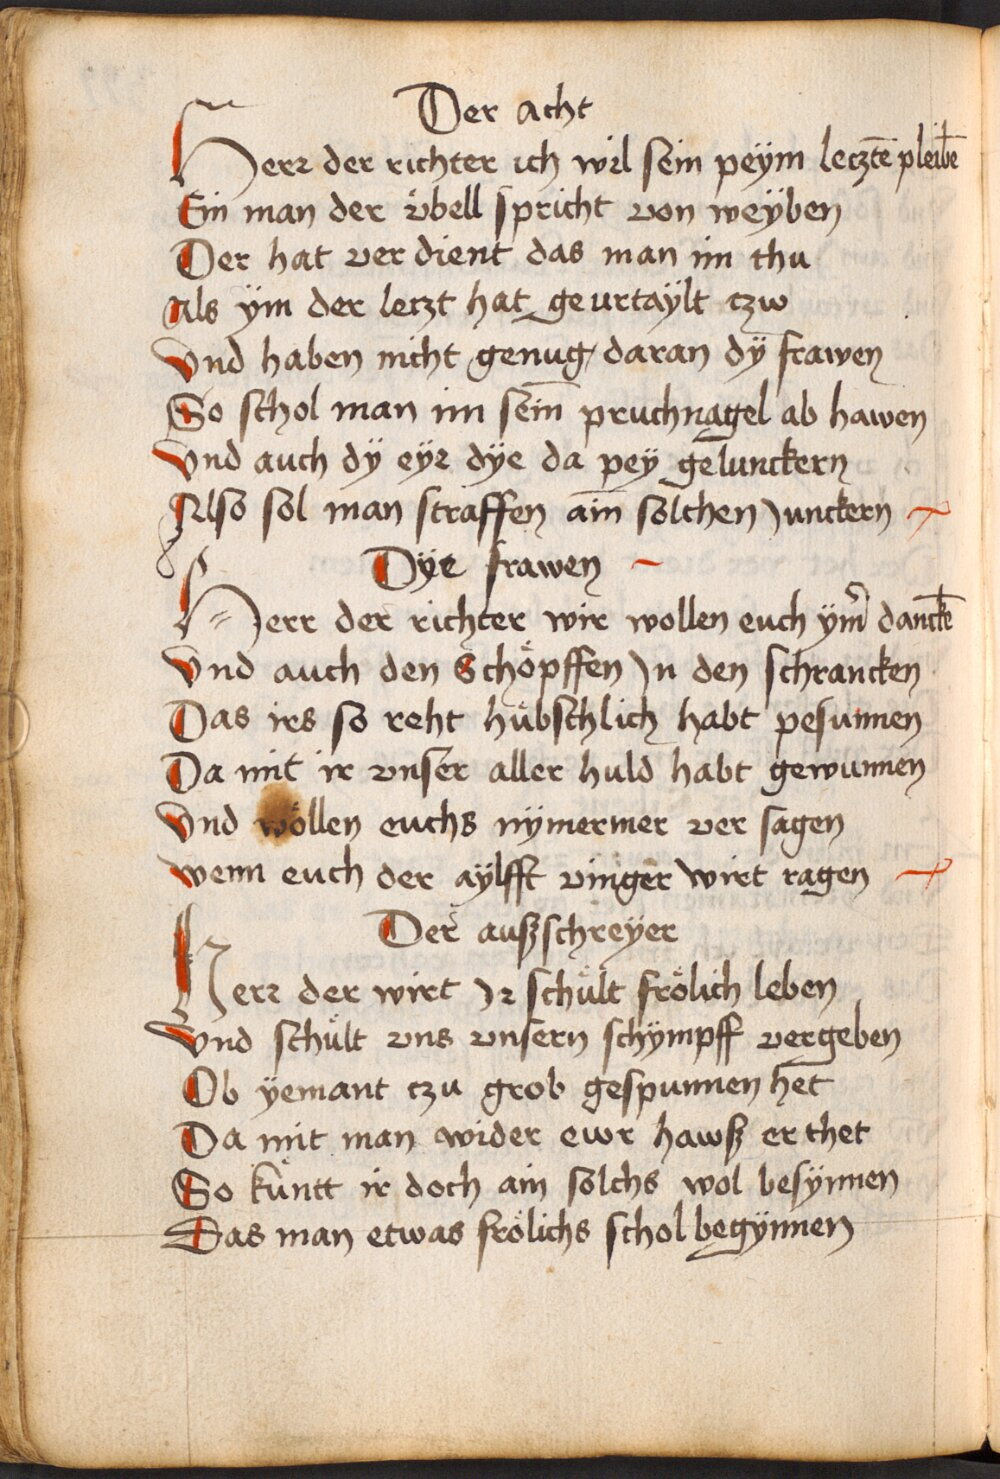 Der acht
Herr der richter ich wil sein peÿm lecztē pleibē
Ein man der v̈bell spricht von weÿben
Der hat ver dient das man im thu
Als ÿm der leczt hat geurtaÿlt czw
Vnd haben nicht genug daran dÿ frawen
So schol man im sein̄ pruchnagel ab hawen
Vnd auch dÿ eÿr dÿe da peÿ gelunckern
Also sol man straffen ain̄ solchen Junckern
Dÿe frawen
Herr der richter wir wollen euch ÿm̄er danckē
Vnd auch den Schöpffen Jn den schrancken
Das irs so reht hübschlich habt pesunnen
Da mit ir vnser aller huld habt gewunnen
Vnd wöllen euchs nÿmermer ver sagen
wenn euch der aÿlfft vinger wirt ragen
Der außschreÿer
Herr der wirt Jr schült frölich leben
Vnd schült vns vnsern schÿmpff vergeben
Ob ÿemant czu grob gespunnen het
Da mit man wider ewr hawß er thet
So küntt ir doch ain solchs wol besÿnnen
Das man etwas frölichs schol begÿnnen